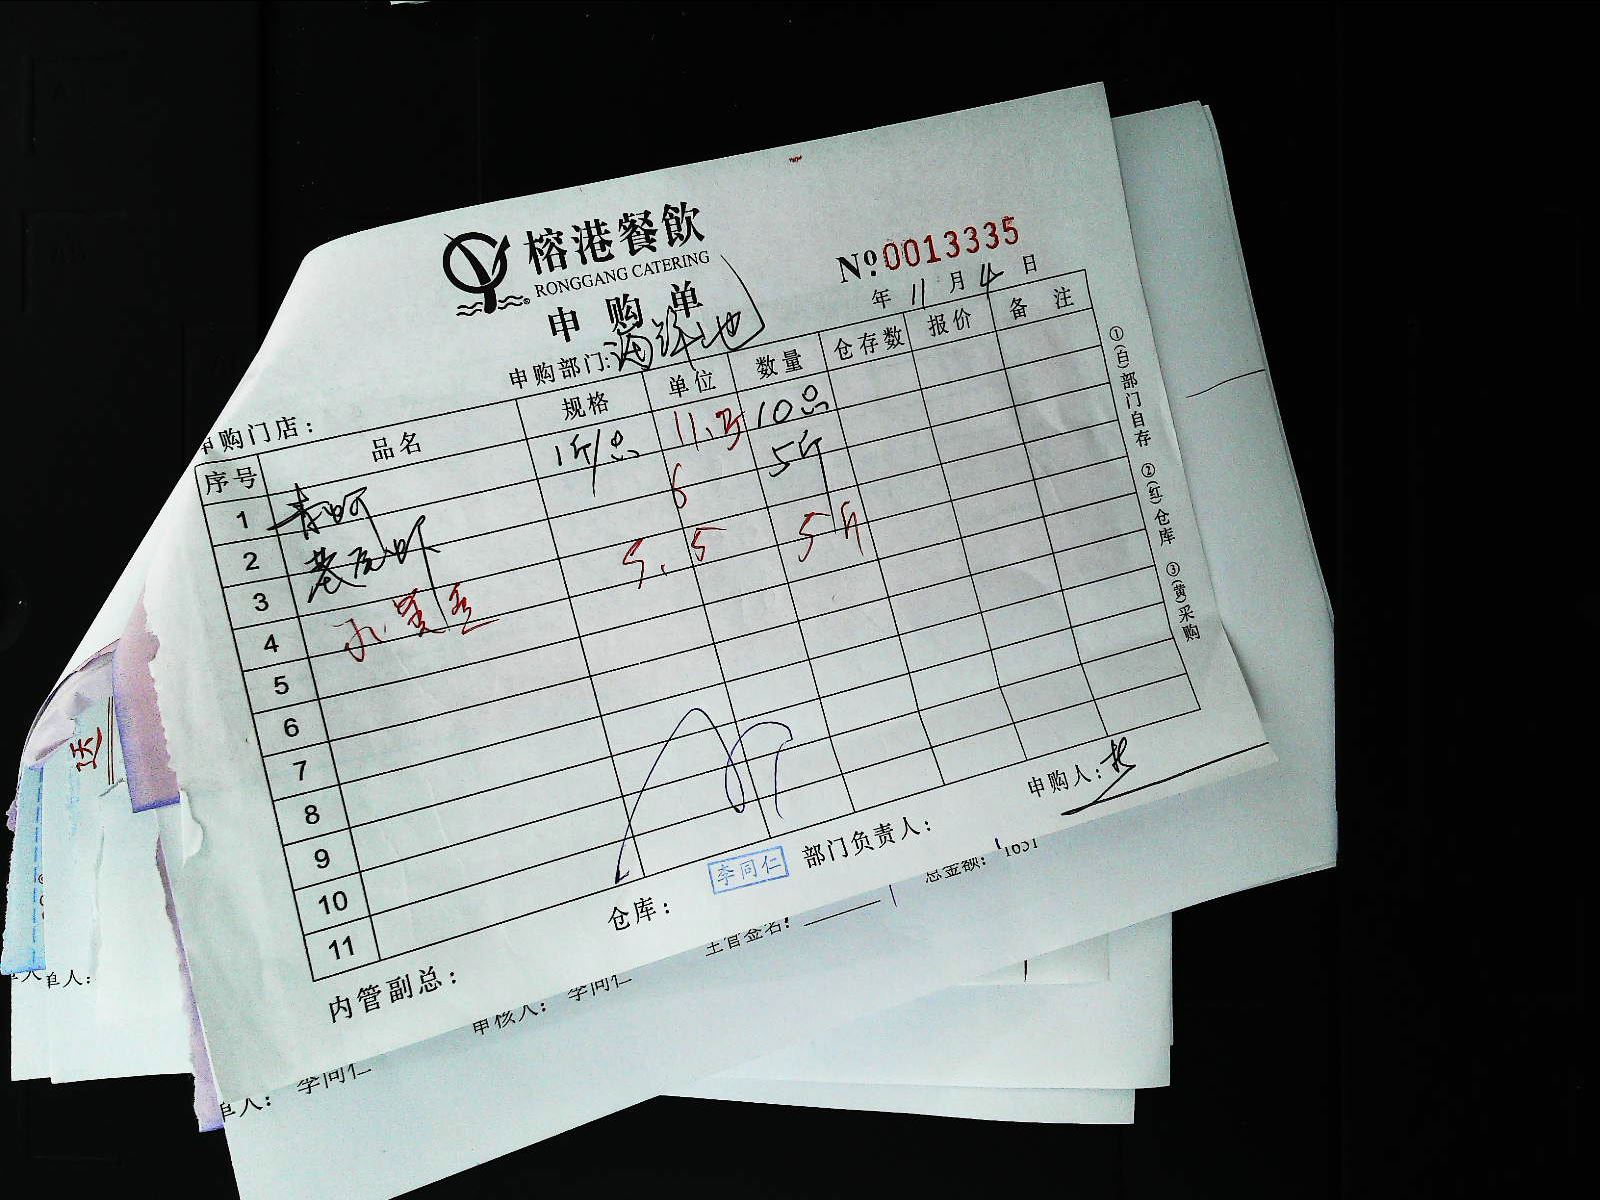 榕港餐飲
RONGGANG CATERING
申购单
№ 0013335
年 11 月 4 日
申购部门:
申购门店:
序号 品名 规格 单位 数量 仓存数 报价 备注
1 1斤/只 11.5 10只
2 6 5斤
3 5.5 5斤
4
5
6
7
8
9
10
11
①(白)部门自存 ②(红)仓库 ③(黄)采购
内管副总: 仓库: 李同仁 部门负责人: 申购人:
送
总金额:
主管签名:
审核人: 李同仁
单人: 李同仁
单人: